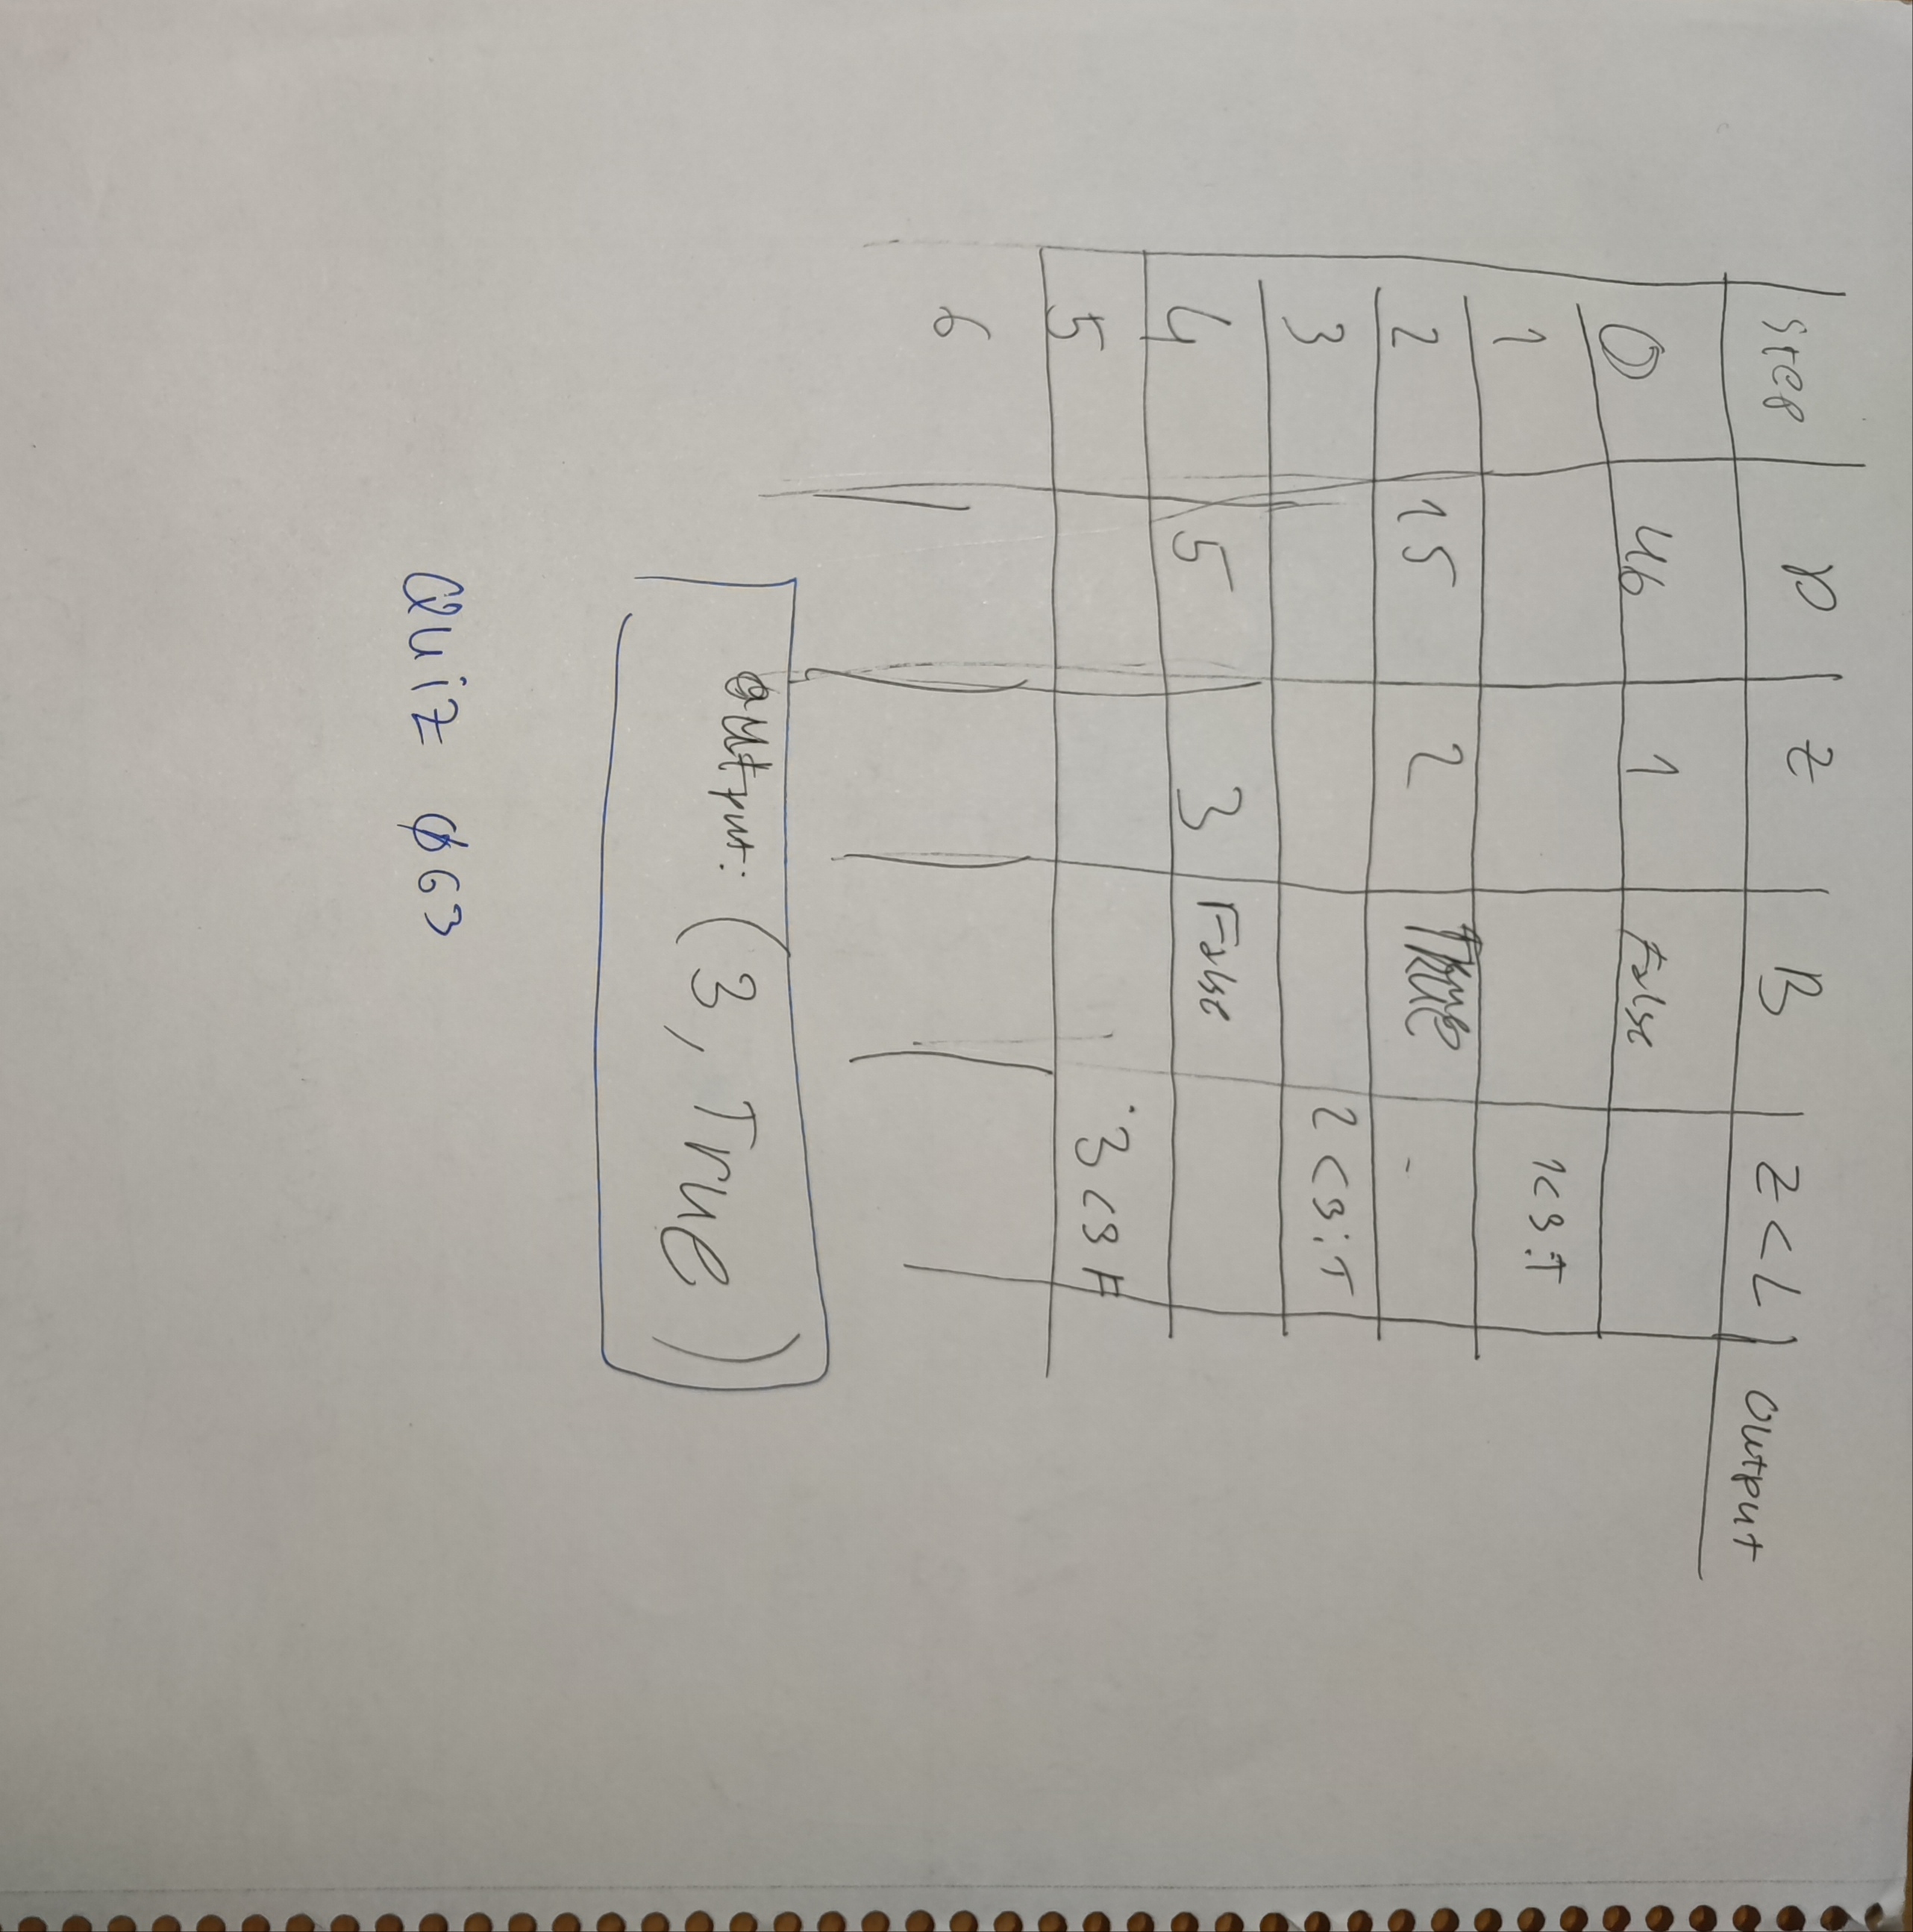 Step p z B z<L output
0 46 1 False
1 1<3:T
2 15 2 True -
3 2<3:T
4 5 3 False
5 3<3 F
6
output: (3, True)
Quiz 063